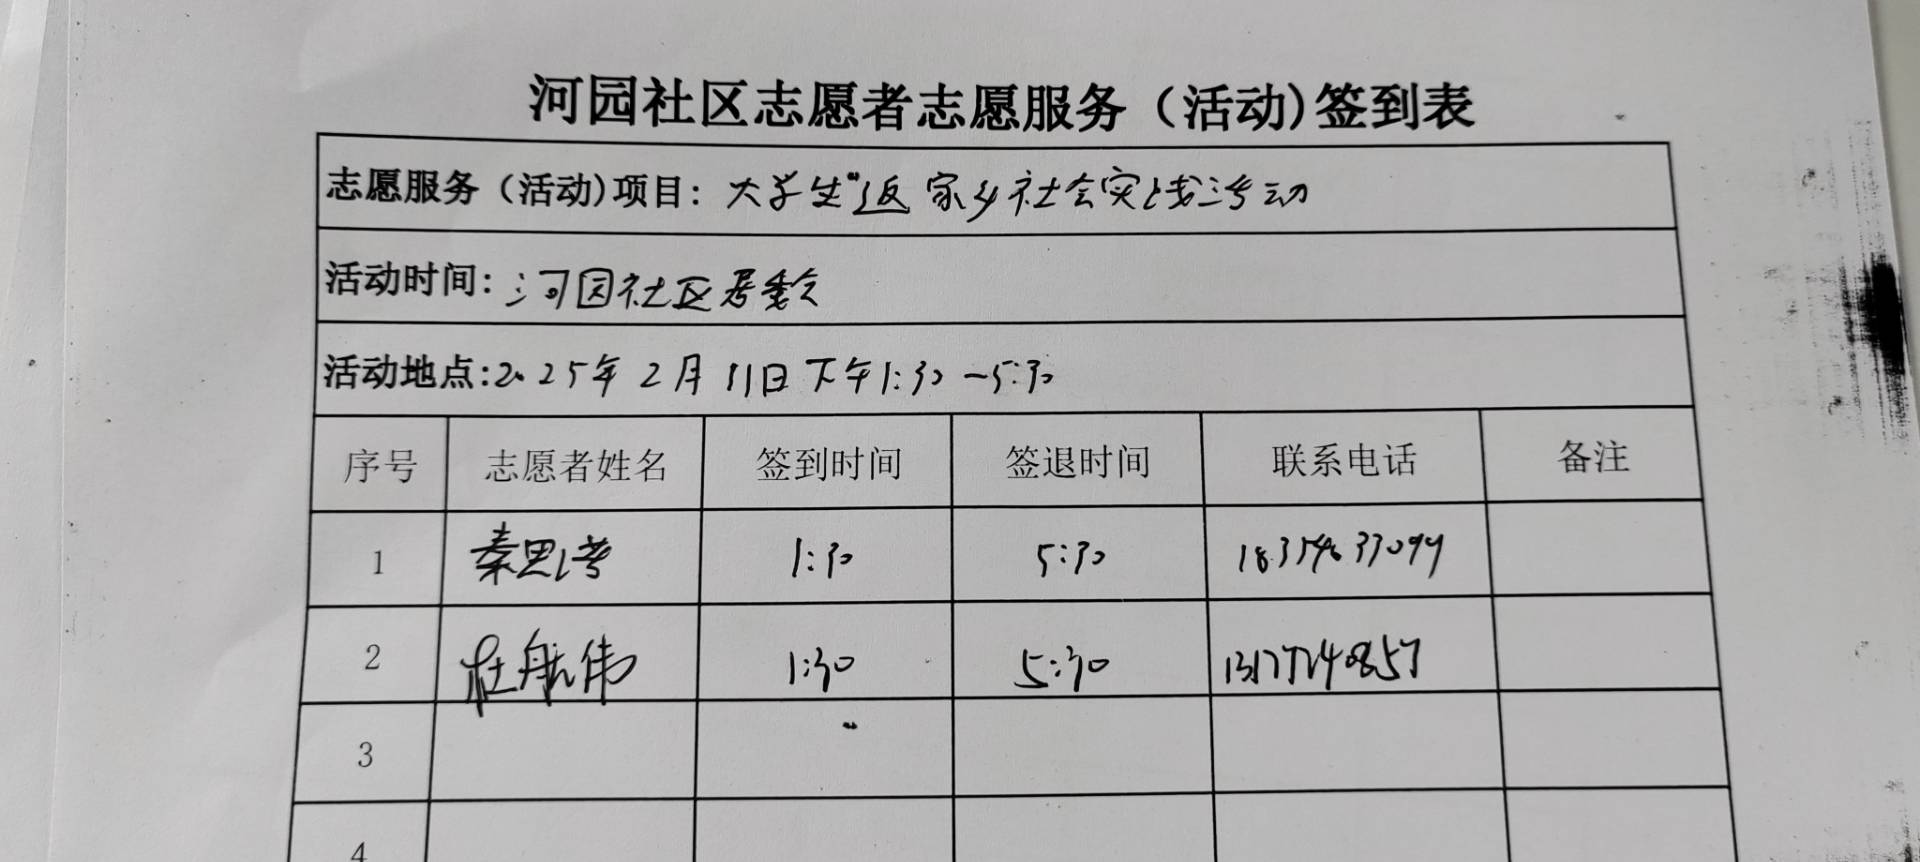 河园社区志愿者志愿服务（活动)签到表
志愿服务（活动)项目：大学生"返家乡社会实践活动
活动时间：河园社区居委会
活动地点:2025年2月11日下午1:30-5:30
序号 志愿者姓名 签到时间 签退时间 联系电话 备注
1 秦思 1:30 5:30
2 杜航伟 1:30 5:30
3
4